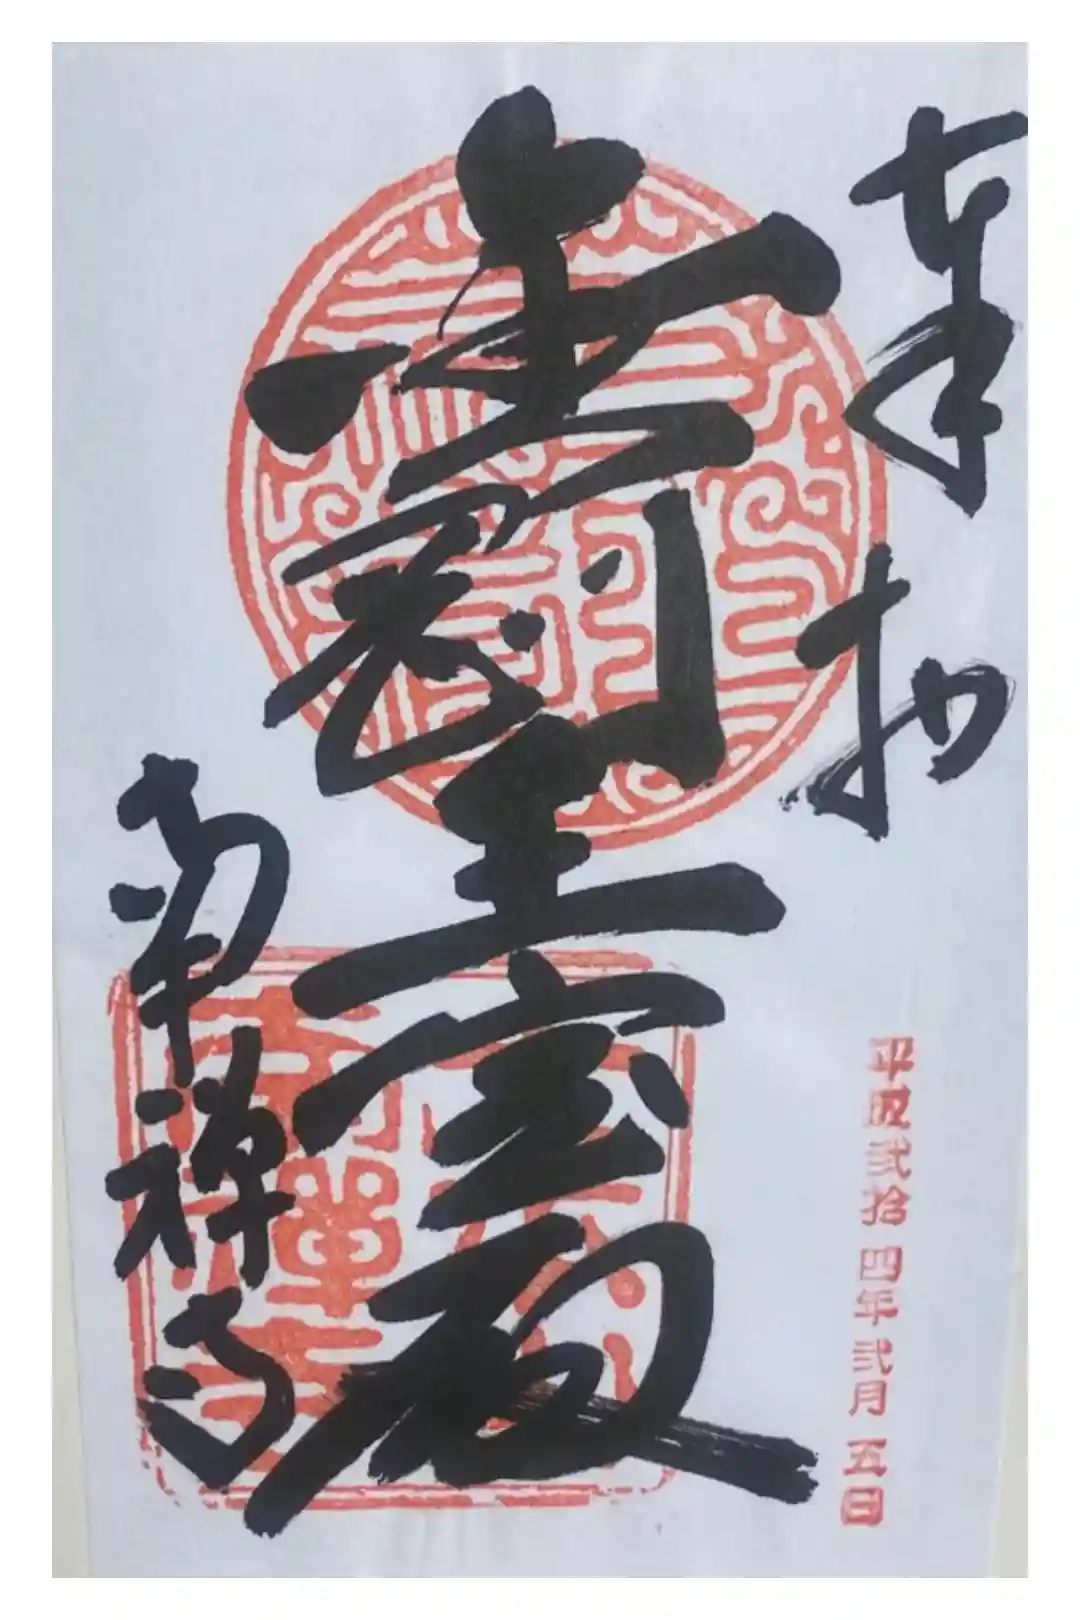 奉拝
平成弐拾四年弐月五日
金剛王宝殿
南禅寺